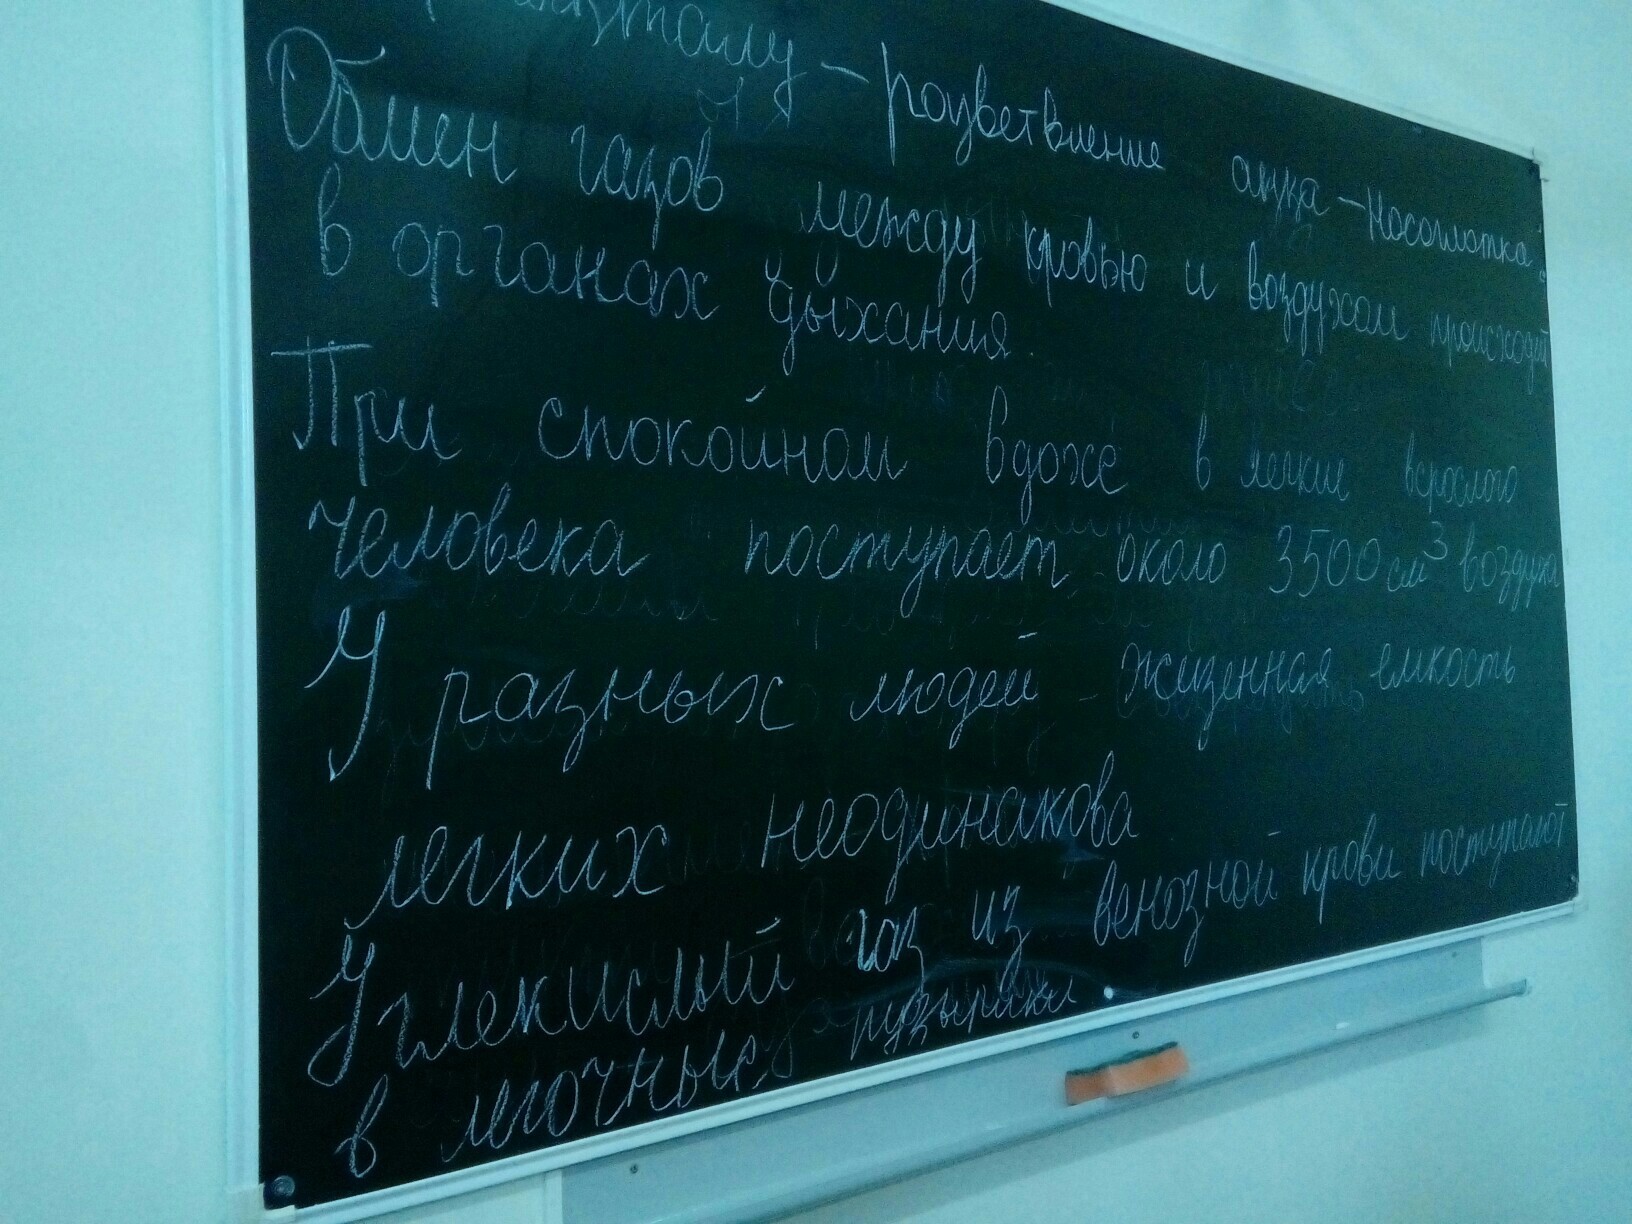 – разветвление – Носоглотка
Обмен газов между кровью и воздухом происходит
в органах дыхания.
При спокойном вдохе в легкие взрослого
человека поступает около 3500 см³ воздуха
У разных людей жизненная емкость
легких неодинакова
Углекислый газ из венозной крови поступают
в легочные пузырьки